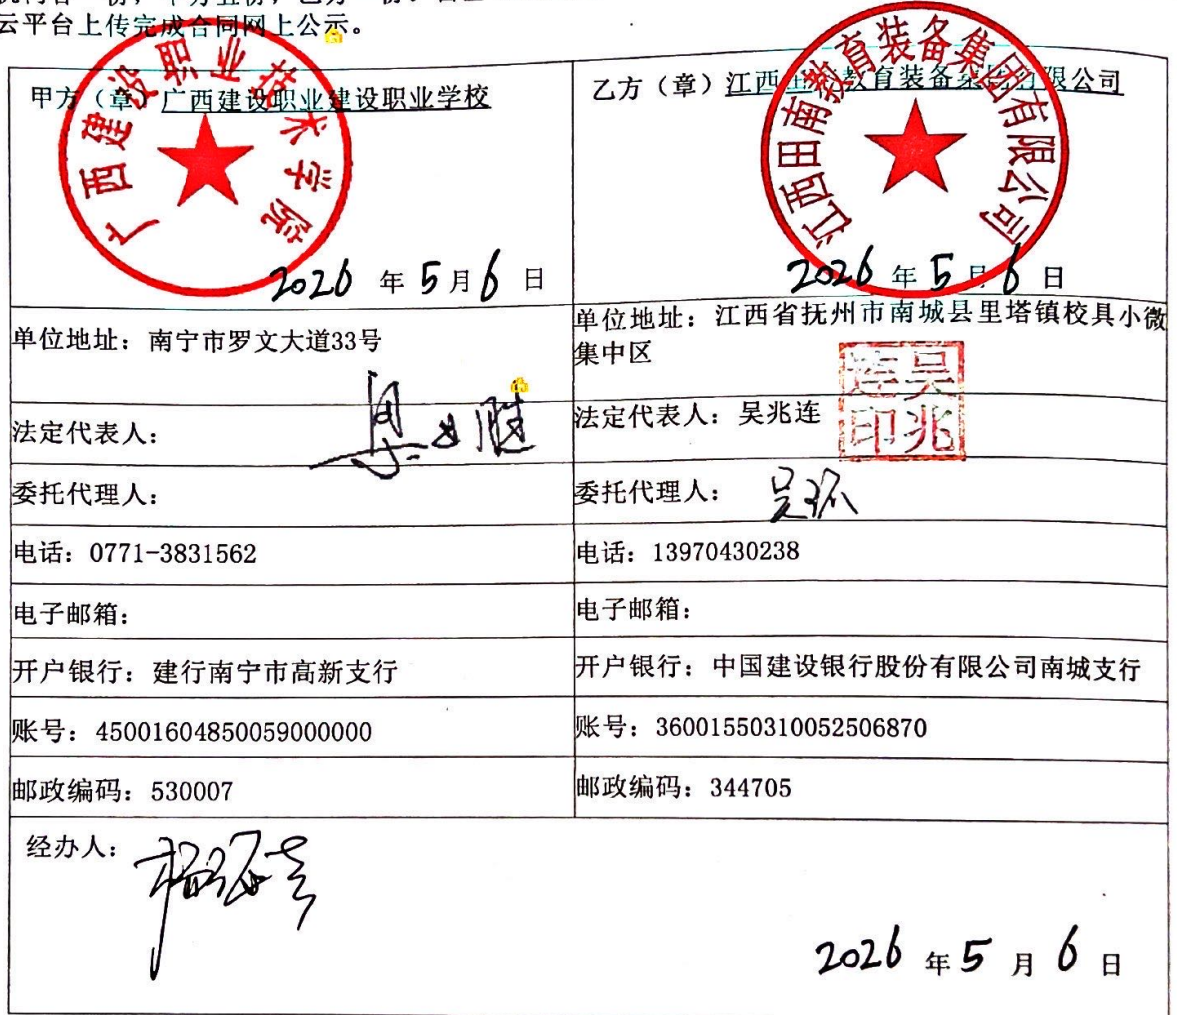 云平台上传完成合同网上公示。
甲方（章）广西建设职业建设职业学校
广西建设职业技术学院
2026 年 5 月 6 日
乙方（章）江西田南教育装备集团有限公司
江西田南教育装备集团有限公司
2026 年 5 月 6 日
单位地址：南宁市罗文大道33号
单位地址：江西省抚州市南城县里塔镇校具小微
集中区
法定代表人：
法定代表人：吴兆连
吴兆连印
委托代理人：
委托代理人：
电话：0771-3831562
电话：13970430238
电子邮箱：
电子邮箱：
开户银行：建行南宁市高新支行
开户银行：中国建设银行股份有限公司南城支行
账号：45001604850059000000
账号：36001550310052506870
邮政编码：530007
邮政编码：344705
经办人：
2026 年 5 月 6 日